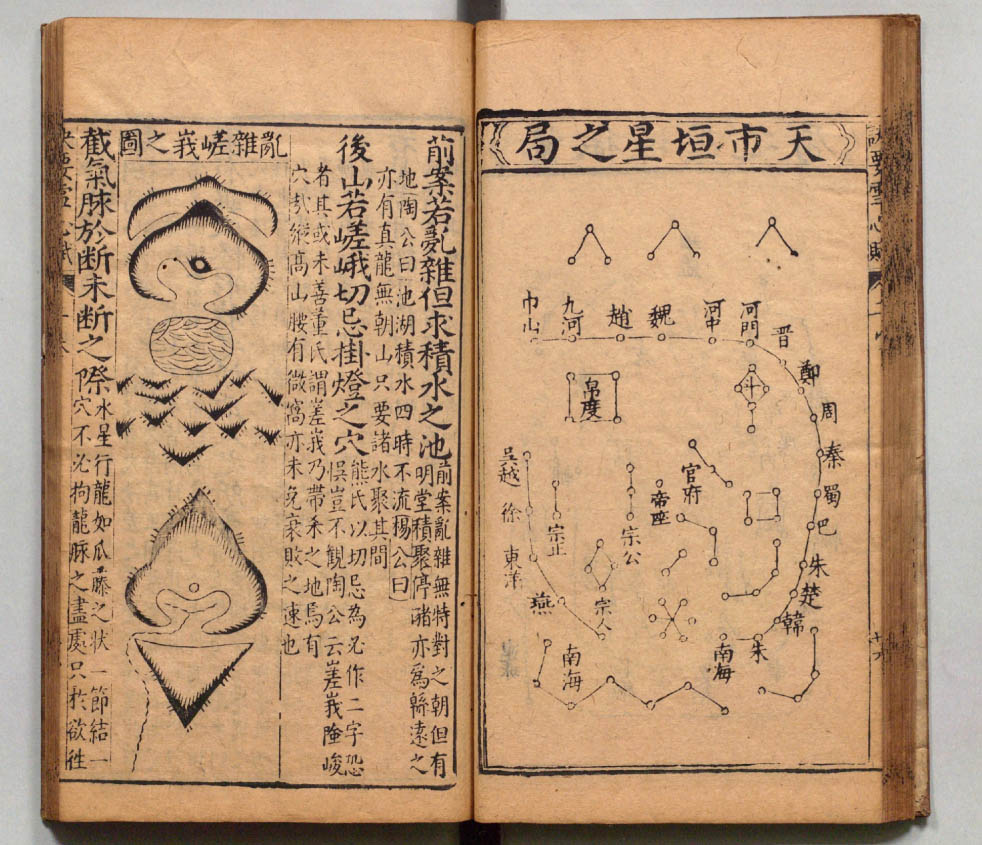 天市垣星之局
河門
河中
魏
趙
九河
巾山
晋
鄭
周
秦
蜀
巴
朱
楚
韓
朱
南海
斗
帛度
官府
帝座
宗公
宗正
宗人
吳越
徐
東
燕
南海
前案若亂雜但求積水之池
前案亂雜無特對之朝但有
明堂積聚停瀦亦爲縣遠之
地陶公曰池湖積水四時不流楊公曰
亦有真龍無朝山只要諸水聚其間
後山若嵯峨切忌掛燈之穴
熊氏以切忌為必作二字恐
悞豈不觀陶公云嵯峩陡峻
者其或未善董氏謂嵯峩乃帶杀之地焉有
穴哉縱高山腰有微窩亦未免衰敗之速也
亂雜嵯峩之圖
截氣脉於断未断之際
水星行龍如瓜藤之狀一節結一
穴不必拘龍脉之盡處只於欲徃